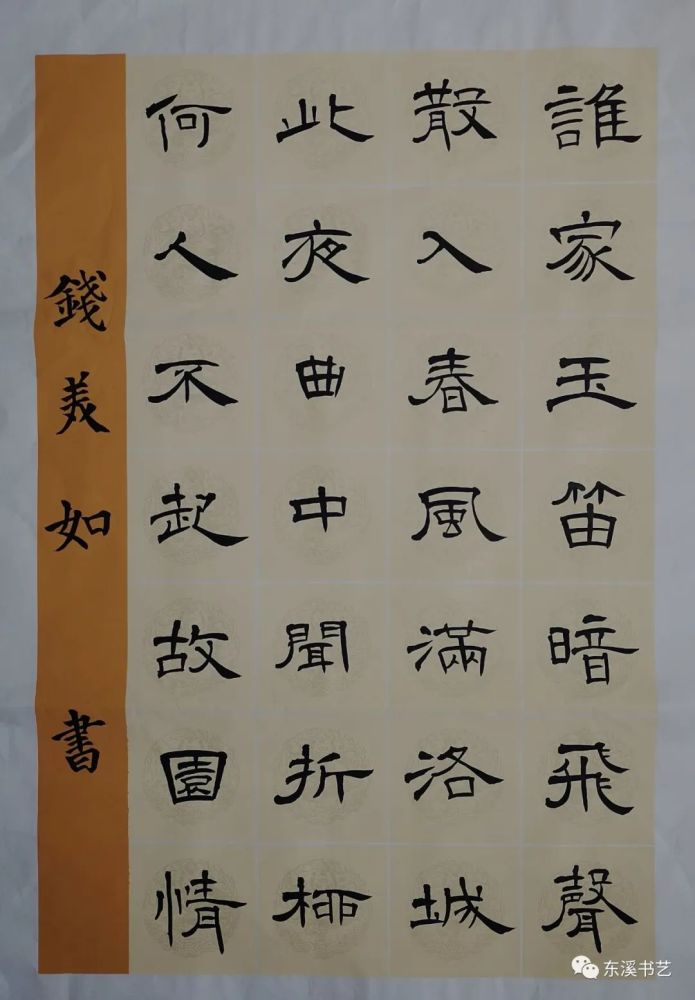 誰家玉笛暗飛聲
散入春風滿洛城
此夜曲中聞折柳
何人不起故園情
錢美如書
东溪书艺